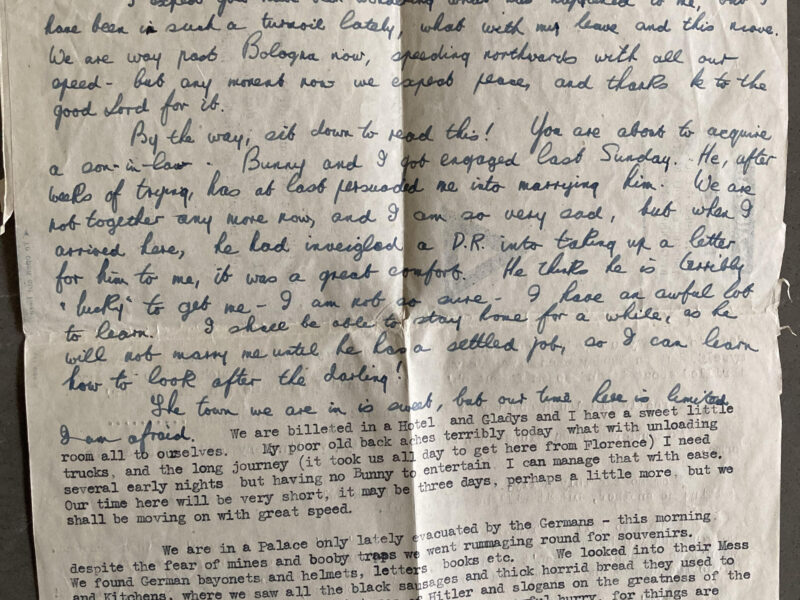 I expect you have been wondering what has happened to me, but I
have been in such a turmoil lately, what with my leave and this move.
We are way past Bologna now, speeding northwards with all our
speed - but any moment now we expect peace, and thanks be to the
good Lord for it.
By the way, sit down to read this! You are about to acquire
a son-in-law. Bunny and I got engaged last Sunday. He, after
weeks of trying, has at last persuaded me into marrying him. We are
not together any more now, and I am so very sad, but when I
arrived here, he had inveigled a D.R. into taking up a letter
for him to me, it was a great comfort. He thinks he is terribly
"lucky" to get me - I am not so sure - I have an awful lot
to learn. I shall be able to stay home for a while, as he
will not marry me until he has a settled job, so I can learn
how to look after the darling!
The town we are in is sweet, but our time here is limited
I am afraid. We are billeted in a Hotel and Gladys and I have a sweet little
room all to ourselves. My poor old back aches terribly today, what with unloading
trucks, and the long journey (it took us all day to get here from Florence) I need
several early nights but having no Bunny to entertain I can manage that with ease.
Our time here will be very short, it may be three days, perhaps a little more, but we
shall be moving on with great speed.
We are in a Palace only lately evacuated by the Germans - this morning,
despite the fear of mines and booby traps we went rummaging round for souvenirs.
We found German bayonets and helmets, letters, books etc. We looked into their Mess
and Kitchens, where we saw all the black sausages and thick horrid bread they used to
Hitler and slogans on the greatness of the
hurry, for things are